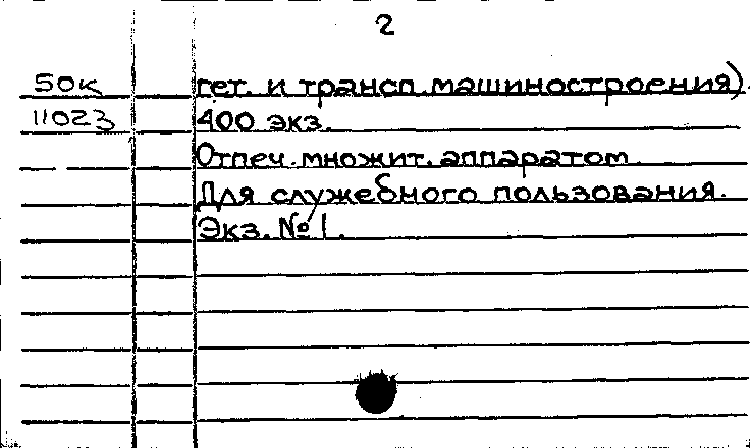 2
50к гет. и трансп. машиностроения).
11023 400 экз.
Отпеч. множит. аппаратом
Для служебного пользования.
Экз. №1.